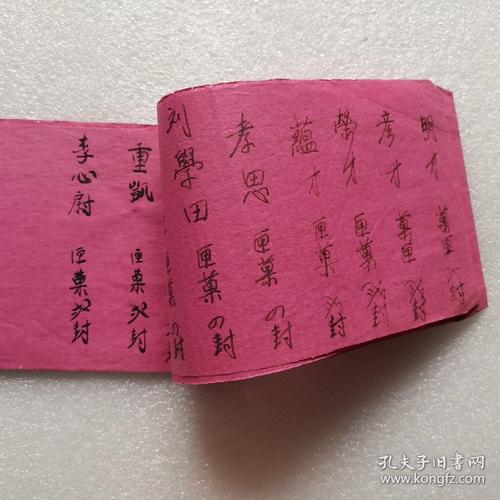 明才 菓匣 封
彦才 菓匣 封
榮才 匣菓 封
蘊才 匣菓 封
孝思 匣菓の封
刘學田 匣菓の封
匣菓の封
重凱 匣菓 封
李心尉 匣菓 封
孔夫子旧书网
www.kongfz.com